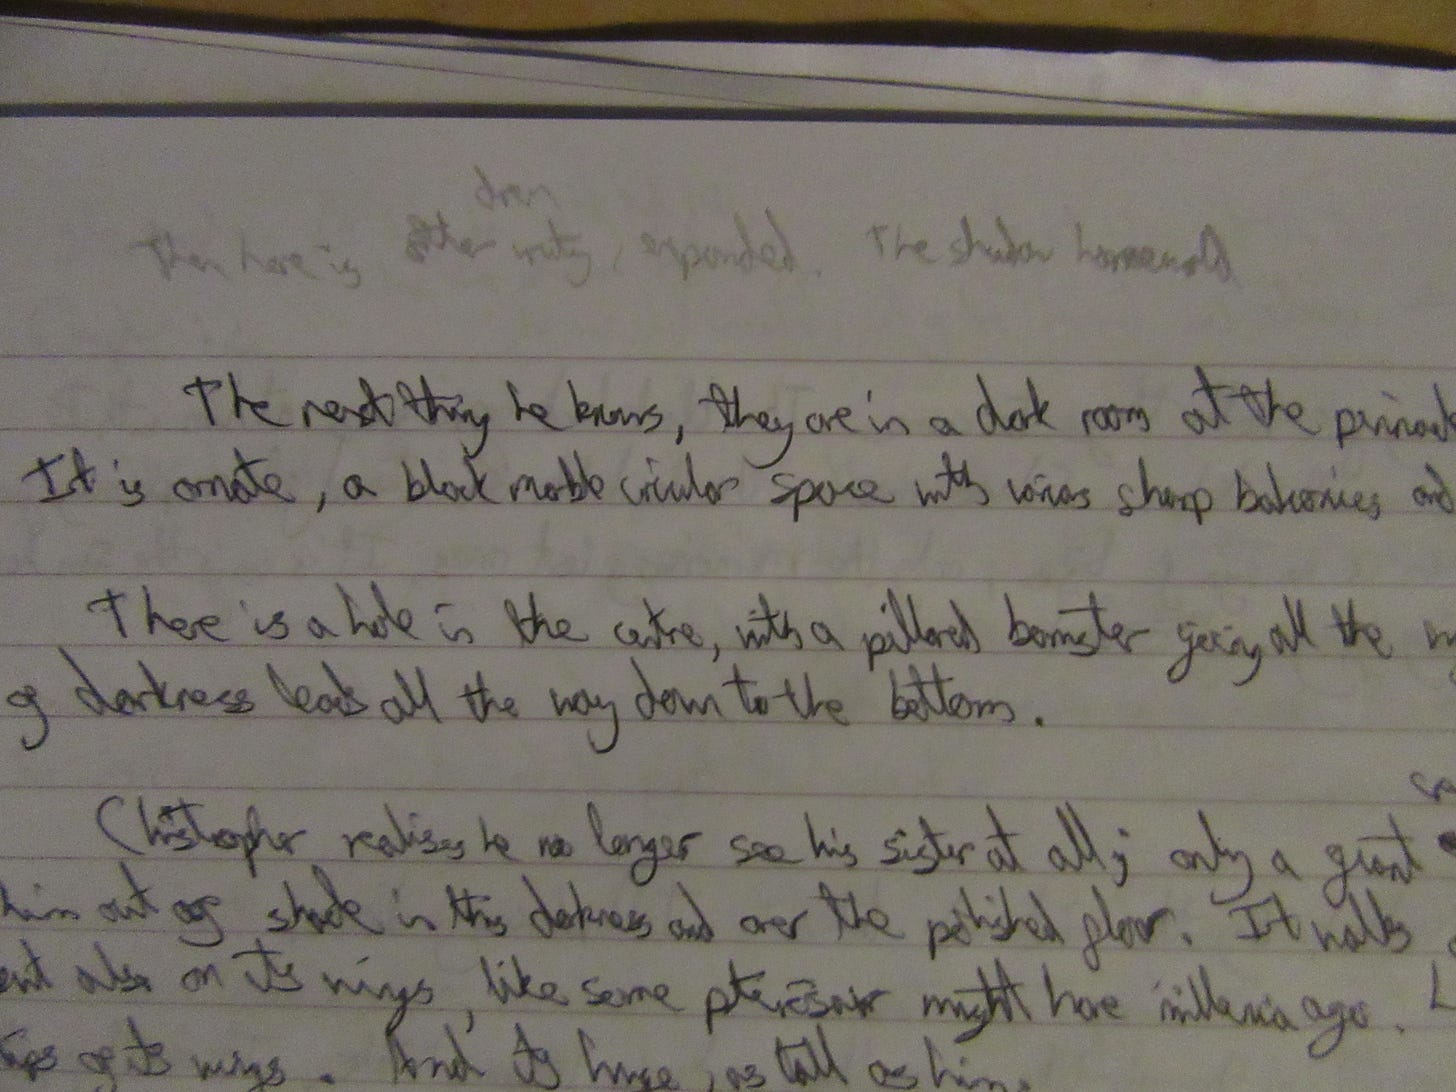 then here is
expanded. The shadow
The next thing he knows, they are in a dark room at the
It is ornate, a black marble circular space with various sharp balconies and
There is a hole in the centre, with a pillared banister going all the
of darkness leads all the way down to the bottom.
Christopher realises he no longer see his sister at all; only a giant
him out of shade in this darkness and over the polished floor. It walks
also on its wings, like some pterosaur might have millenia ago.
of its wings. And its huge, as tall as him.